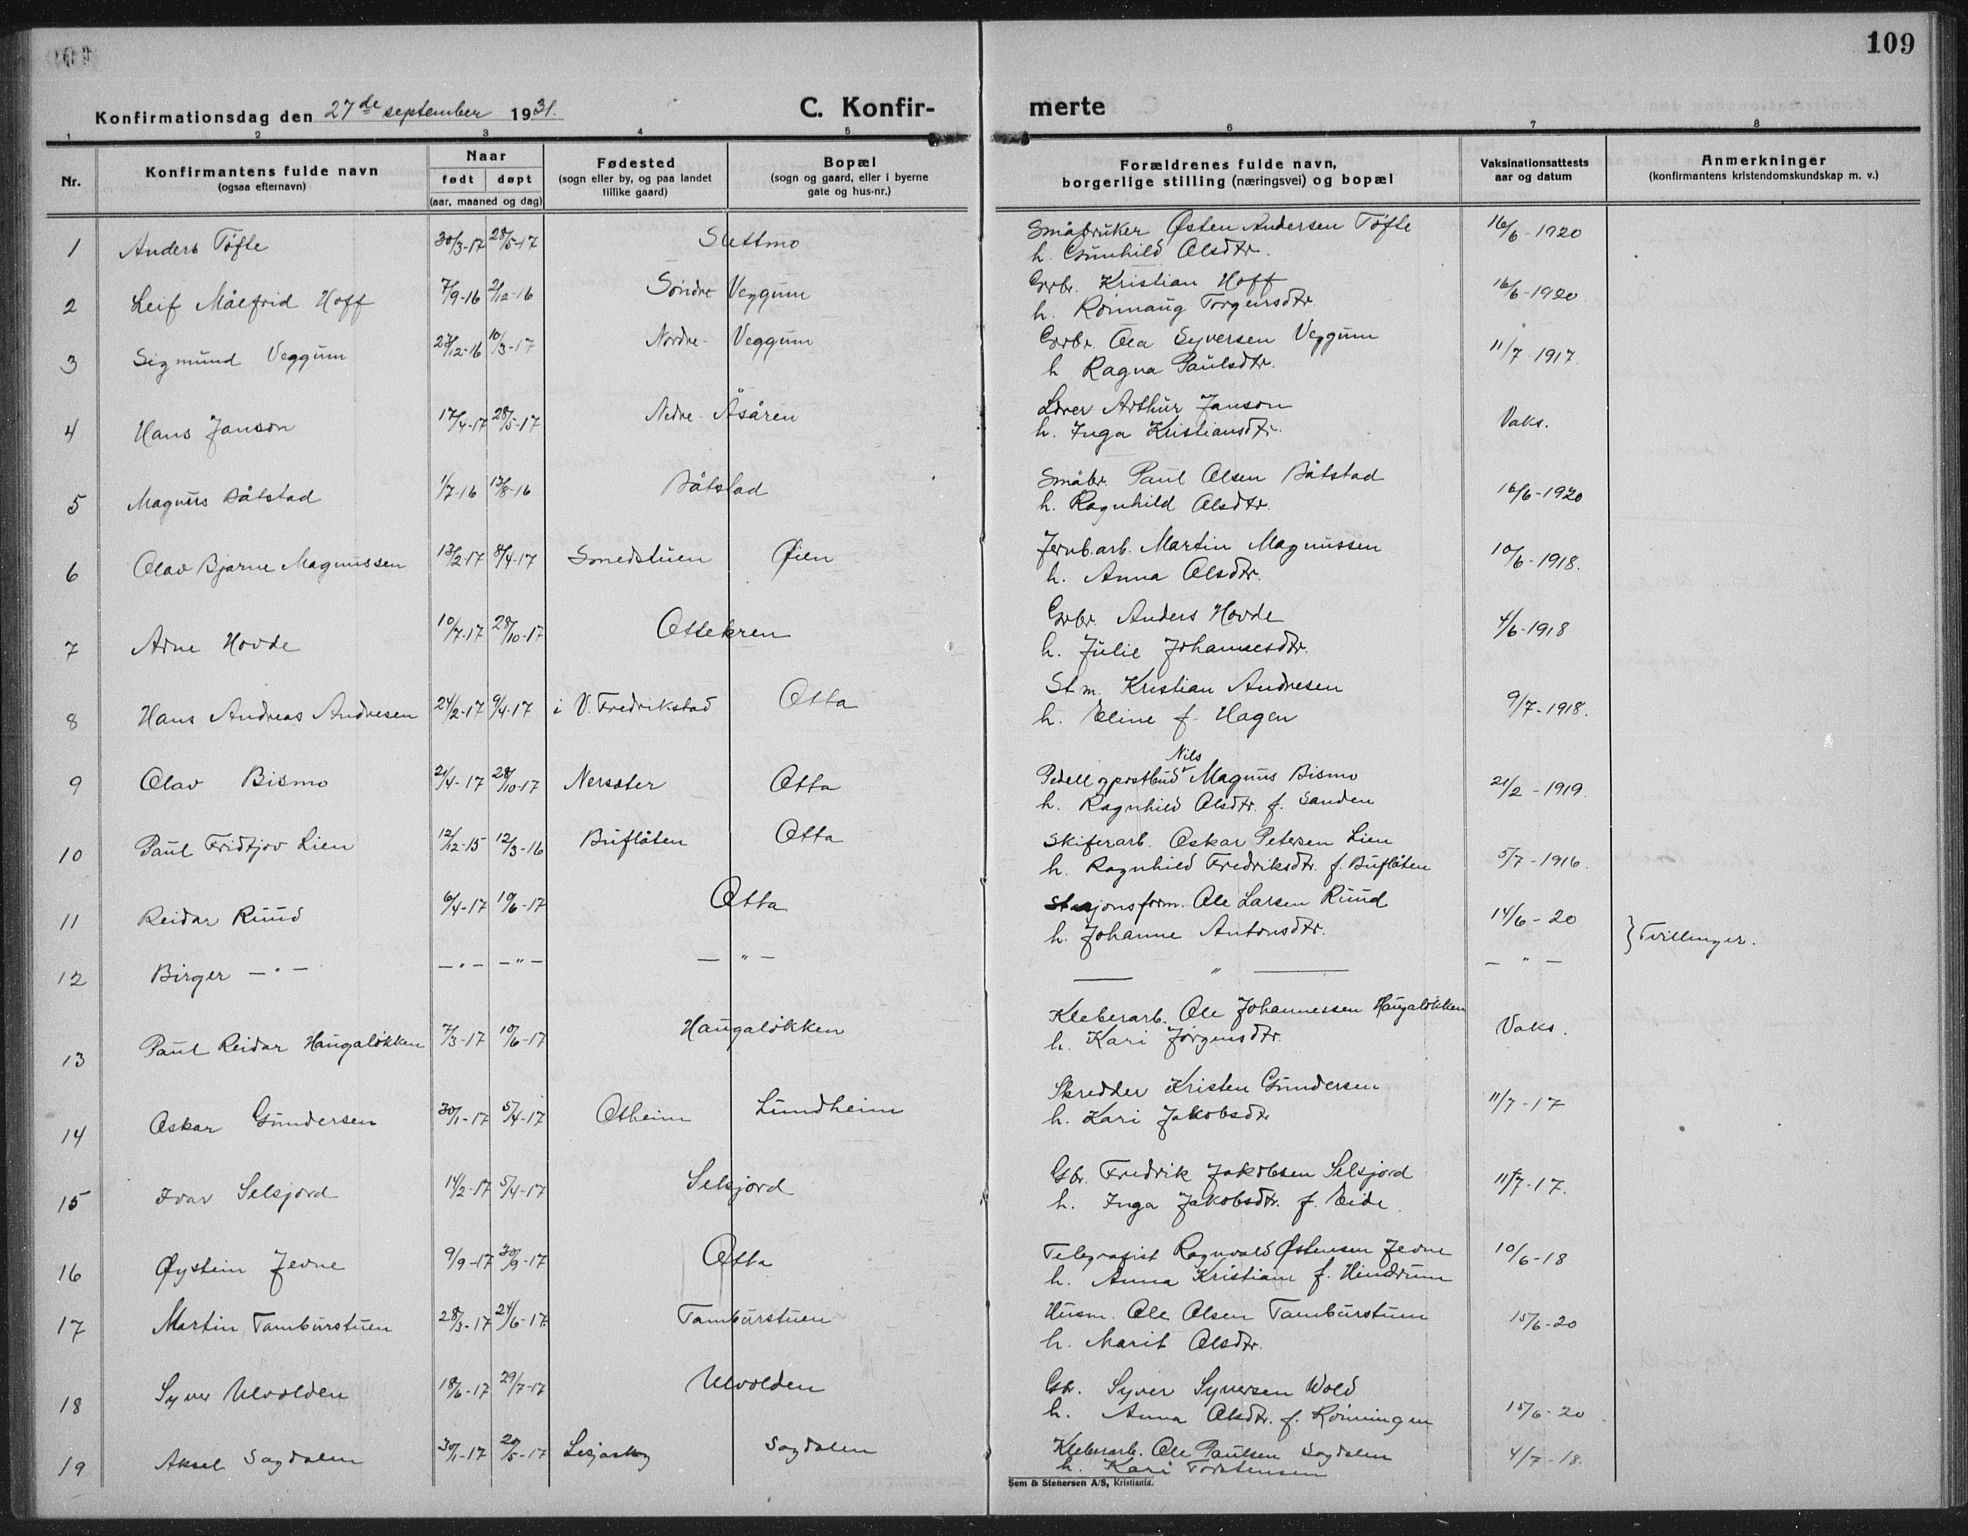 109
Konfirmationsdag den 27de september 1931.
C. Konfir- merte
1 2 3 4 5 6 7 8
Nr.
Konfirmantens fulde navn
(ogsaa efternavn)
Naar
født døpt
(aar, maaned og dag)
Fødested
(sogn eller by, og paa landet
tillike gaard)
Bopæl
(sogn og gaard, eller i byerne
gate og hus-nr.)
Forældrenes fulde navn,
borgerlige stilling (næringsvei) og bopæl
Vaksinationsattests
aar og datum
Anmerkninger
(konfirmantens kristendomskundskap m. v.)
1 Anders Tøfte 30/3-17 28/5-17 Slettmo Småbruker Østen Andersen Tøfte 16/6-1920
h. Gunhild Olsdtr.
2 Leif Målfrid Hoff 7/9-16 2/12-16 Søndre Veggum Grbr. Kristian Hoff 16/6-1920
h. Rønnaug Torgersdtr.
3 Sigmund Veggum 27/12-16 10/3-17 Nordre Veggum Grbr. Ola Syversen Veggum 11/7 1917.
h Ragna Paulsdtr.
4 Hans Janson 17/4-17 28/5-17 Nedre Åsåren Lærer Arthur Janson Vaks.
h. Inga Kristiansdtr.
5 Magnus Båtstad 1/7-16 13/8-16 Båtstad Småbr. Paul Olsen Båtstad 16/6-1920
h. Ragnhild Olsdtr.
6 Olav Bjarne Magnussen 13/2-17 8/4-17 Smedstuen Øien Jernb.arb. Martin Magnussen 10/6-1918.
h. Anna Olsdtr.
7 Arne Hovde 10/7-17 28/10-17 Ottekren Grbr. Anders Hovde 4/6-1918
h. Julie Johannesdtr.
8 Hans Andreas Andresen 24/2-17 9/4-17 i V. Fredrikstad Otta St.m. Kristian Andresen 9/7-1918.
h. Eline f. Hagen
9 Olav Bismo 21/4-17 28/10-17 Nersæter Otta Pedell og postbud Nils Magnus Bismo 21/2-1919.
h. Ragnhild Olsdtr. f. Sanden
10 Paul Fridtjov Lien 12/12-15 12/3-16 Buflåten Otta Skiferarb. Oskar Petersen Lien 5/7-1916.
h. Ragnhild Fredriksdtr. f. Buflåten
11 Reidar Ruud 6/4-17 10/6-17 Otta Stasjonsform. Ole Larsen Ruud 14/6-20
h. Johanne Antonsdtr. } Tvillinger.
12 Birger — " — — " — — " — — " — — " — — " —
13 Paul Reidar Haugaløkken 7/3-17 10/6-17 Haugaløkken Kleberarb. Ole Johannessen Haugaløkken Vaks.
h. Kari Jørgensdtr.
14 Oskar Gundersen 30/1-17 5/4-17 Otheim Lundheim Skredder Kristen Gundersen 11/7-17
h. Kari Jakobsdtr
15 Ivar Selsjord 14/2-17 5/4-17 Selsjord Gbr. Fredrik Jakobsen Selsjord 11/7-17.
h. Inga Jakobsdtr. f. Eide.
16 Øystein Jevne 9/9-17 30/9-17 Otta Telegrafist Ragnvald Østensen Jevne 10/6-18
h. Anna Kristiane f. Hindrum
17 Martin Tamburstuen 28/3-17 24/6-17 Tamburstuen Husm. Ole Olsen Tamburstuen 15/6-20
h. Marit Olsdtr.
18 Syver Ulvolden 18/6-17 29/7-17 Ulvolden Gbr. Syver Syversen Wold
h. Anna Olsdtr. f. Rønningen 15/6-20
19 Aksel Sagdalen 30/1-17 20/5-17 Lesjaskog Sagdalen Kleberarb. Ole Paulsen Sagdalen 4/7-18.
h. Kari Torstensen
Sem & Stenersen A/S, Kristiania.